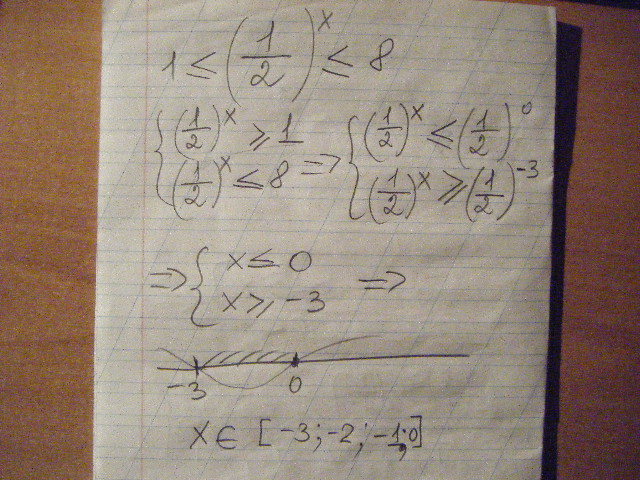 1 ≤ (1/2)^x ≤ 8
{ (1/2)^x ≥ 1 ⇒ { (1/2)^x ≤ (1/2)^0
(1/2)^x ≤ 8 (1/2)^x ≥ (1/2)^-3
⇒ { x ≤ 0
x ≥ -3 ⇒
-3 0
x ∈ [-3; -2; -1; 0]